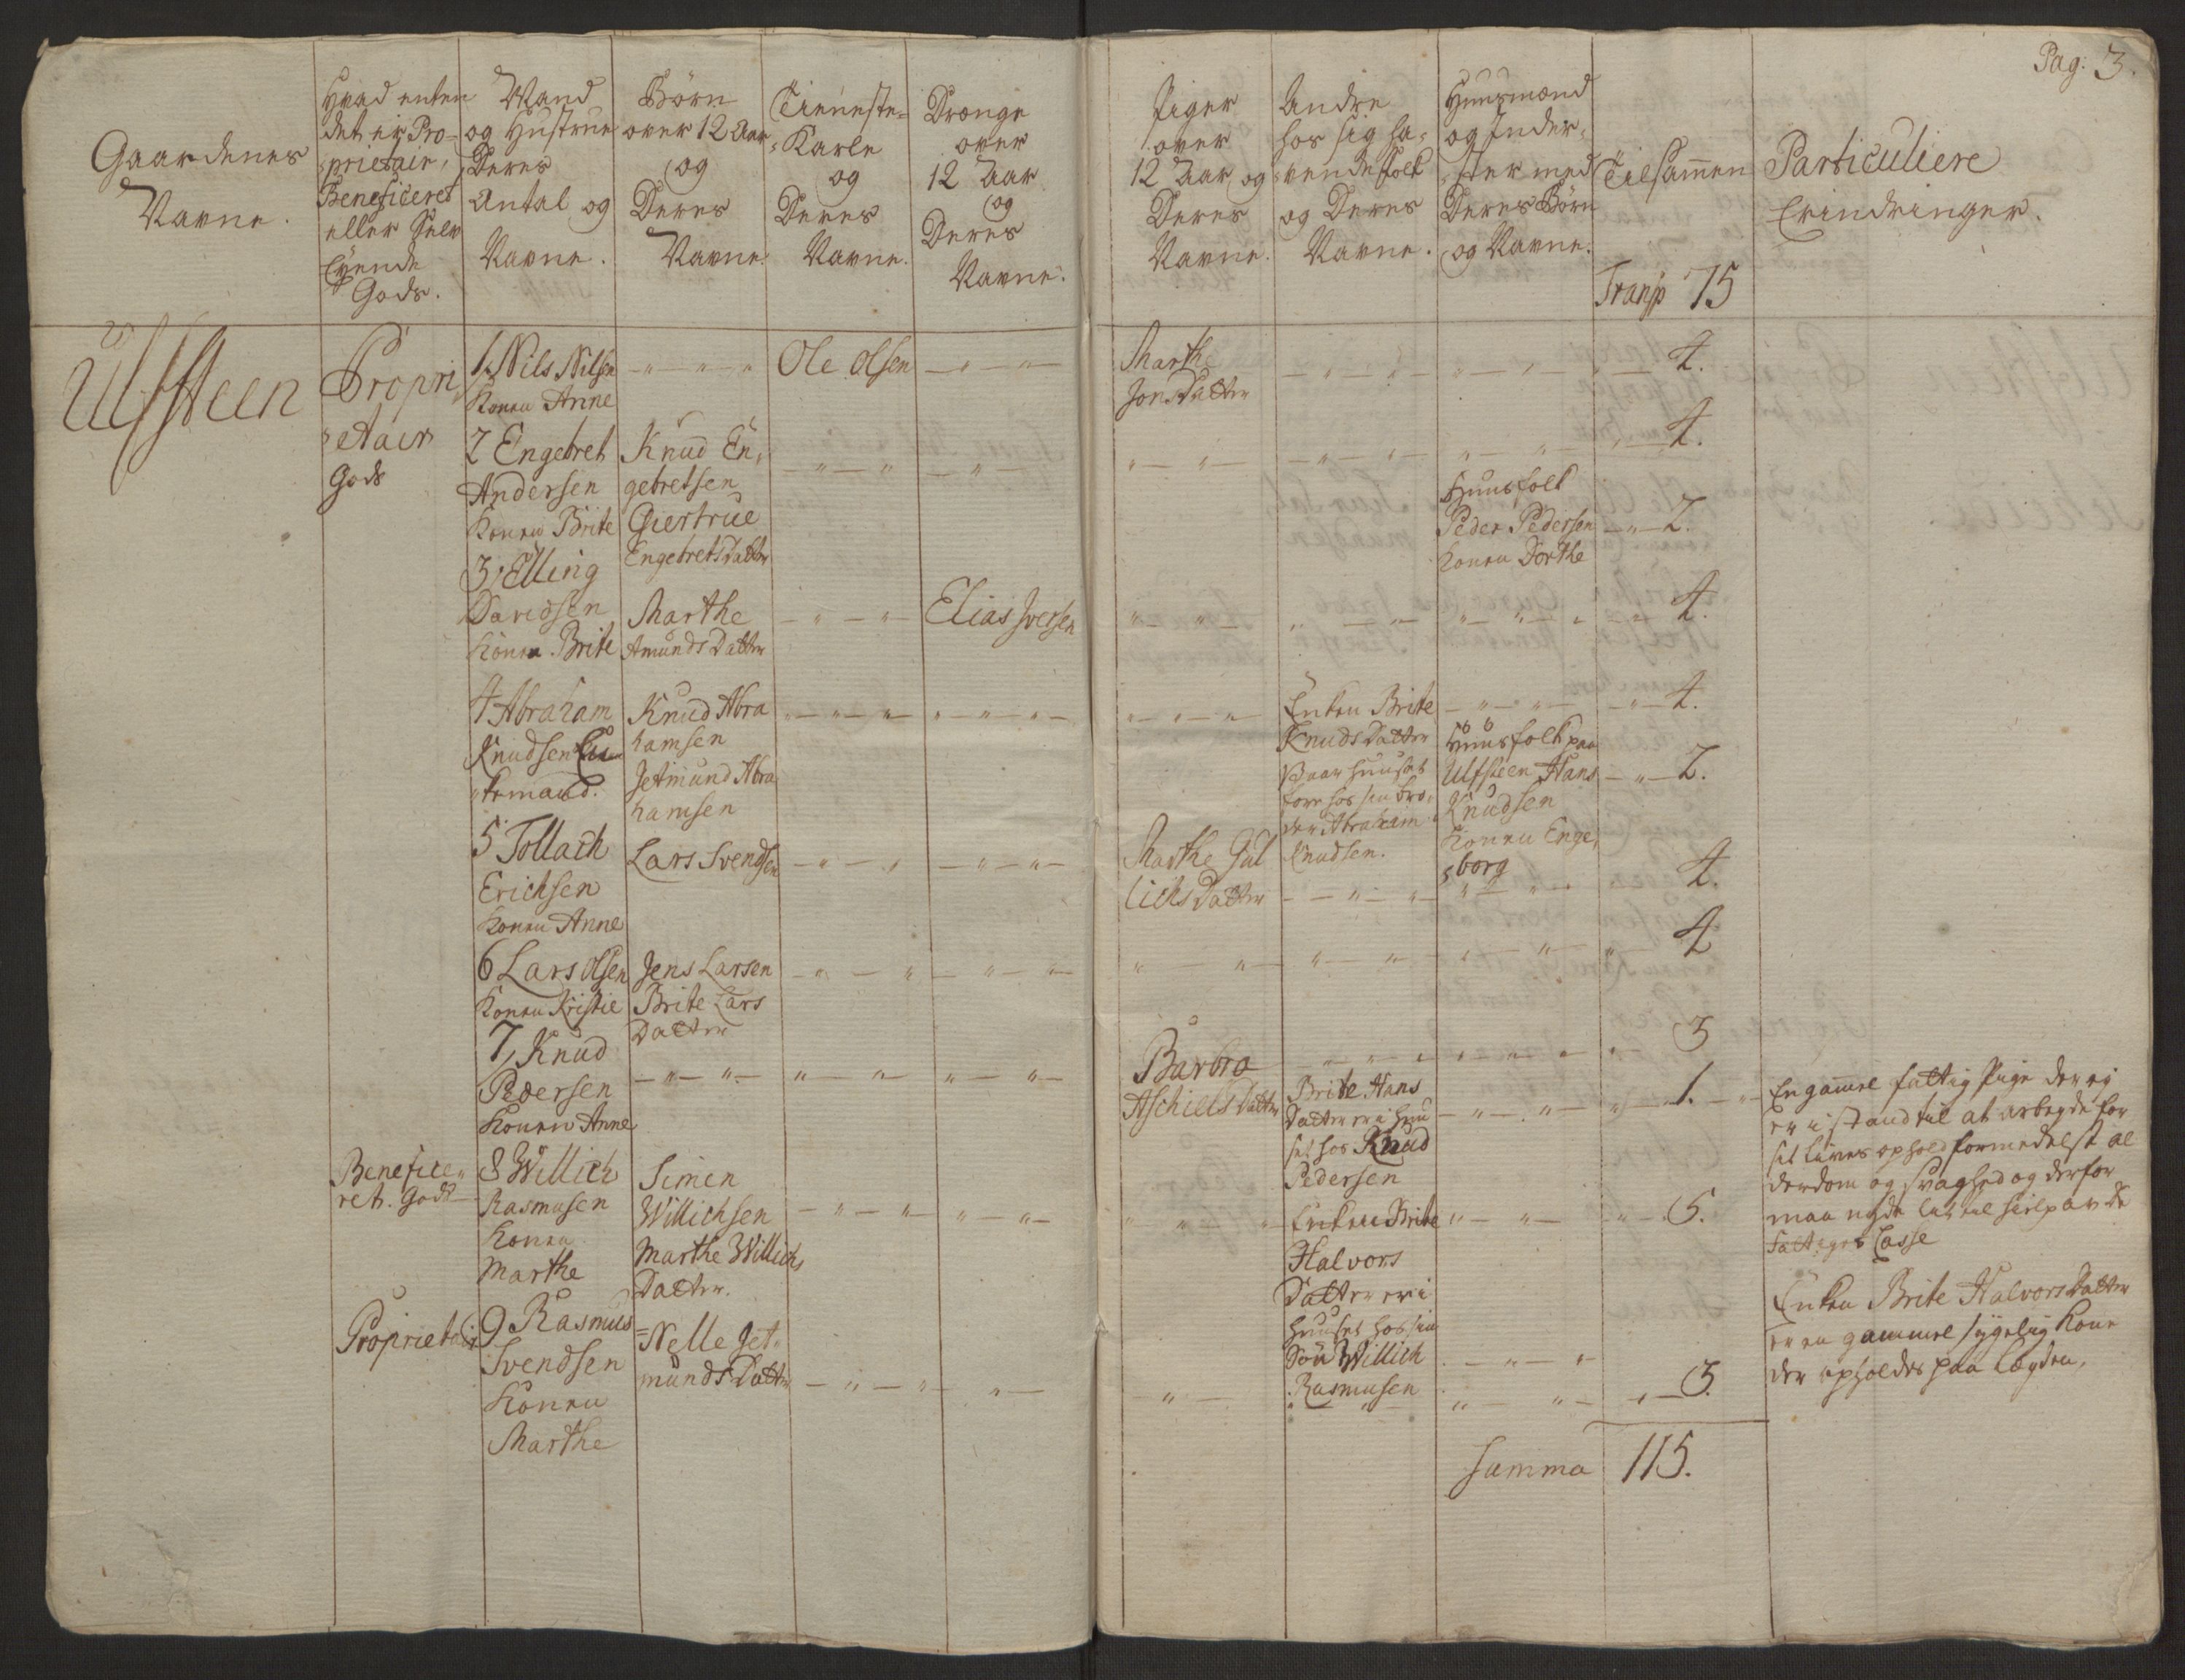 Pag: 3.
Gaardenes
Navne.
Hvad enten
det er Pro-
prietair,
Beneficeret
eller Selv
Eyende
Gods.
Mand
og Hustrue
Deres
Antal og
Navne.
Börn
over 12 Aar
og
Deres
Navne.
Tieneste-
Karle
og
Deres
Navne.
Drenge
over
12 Aar
og
Deres
Navne.
Piger
over
12 Aar og
Deres
Navne.
Andre
hos sig ha-
vende folk
og Deres
Navne.
Huusmænd
og Inder-
ster med
Deres Börn
og Navne.
Tilsamen
Transp 75
Particuliere
Erindringer.
Ulfsteen
Propri
etair
Gods
1. Nils Nilsen
Konen Anne
Ole Olsen
Marthe
Jons Datter
4.
2 Engebret
Andersen
Konen Brite
Knud En-
gebretsen
Giertrue
Engebrets Datter
4.
Huusfolk
Peder Pedersen
Konen Dorthe
2.
3, Elling
Davidsen
Konen Brite
Marthe
Amunds Datter
Elias Iversen
4.
4 Abraham
Knudsen En-
kemand.
Knud Abra
hamsen
Jetmund Abra
hamsen
Enken Brite
Knuds Datter
huuset
hos sin bro-
der Abraham
Knudsen.
4.
Huusfolk paa
Ulfsteen Hans
Knudsen
Konen Enge-
borg
2.
5 Tollach
Erichsen
Konen Anne
Lars Svendsen
Marthe Gul
lichs Datter
4.
6 Lars Olsen
Konen Kristie
Jens Larsen
Brite Lars
Datter
4
7, Knud
Pedersen
Konen Anne
Barbra
Aschiels Datter
3
Brite Hans
Datter er i huu
set hos Knud
Pedersen
1.
En gamel fattig Pige der ej
er i stand til at arbeyde for
sit Lives ophold formedelst al
derdom og svaghed og derfor
maa nyde lit til hielp av de
Fattiges Casse
Benefice-
ret. Gods
8 Willich
Rasmusen
Konen
Marthe
Simen
Willichsen
Marthe Willichs
Datter.
Enken Brite
Halvors
Datter er i
huuset hos sin
Sön Willich
Rasmusen
5.
Enken Brite Halvors Datter
er en gammel sygelig Kone
der opholdes paa Lægden.
Proprietair
9 Rasmus
Svendsen
Konen
Marthe
Nelle Jet-
munds Datter
3.
Summa 115.